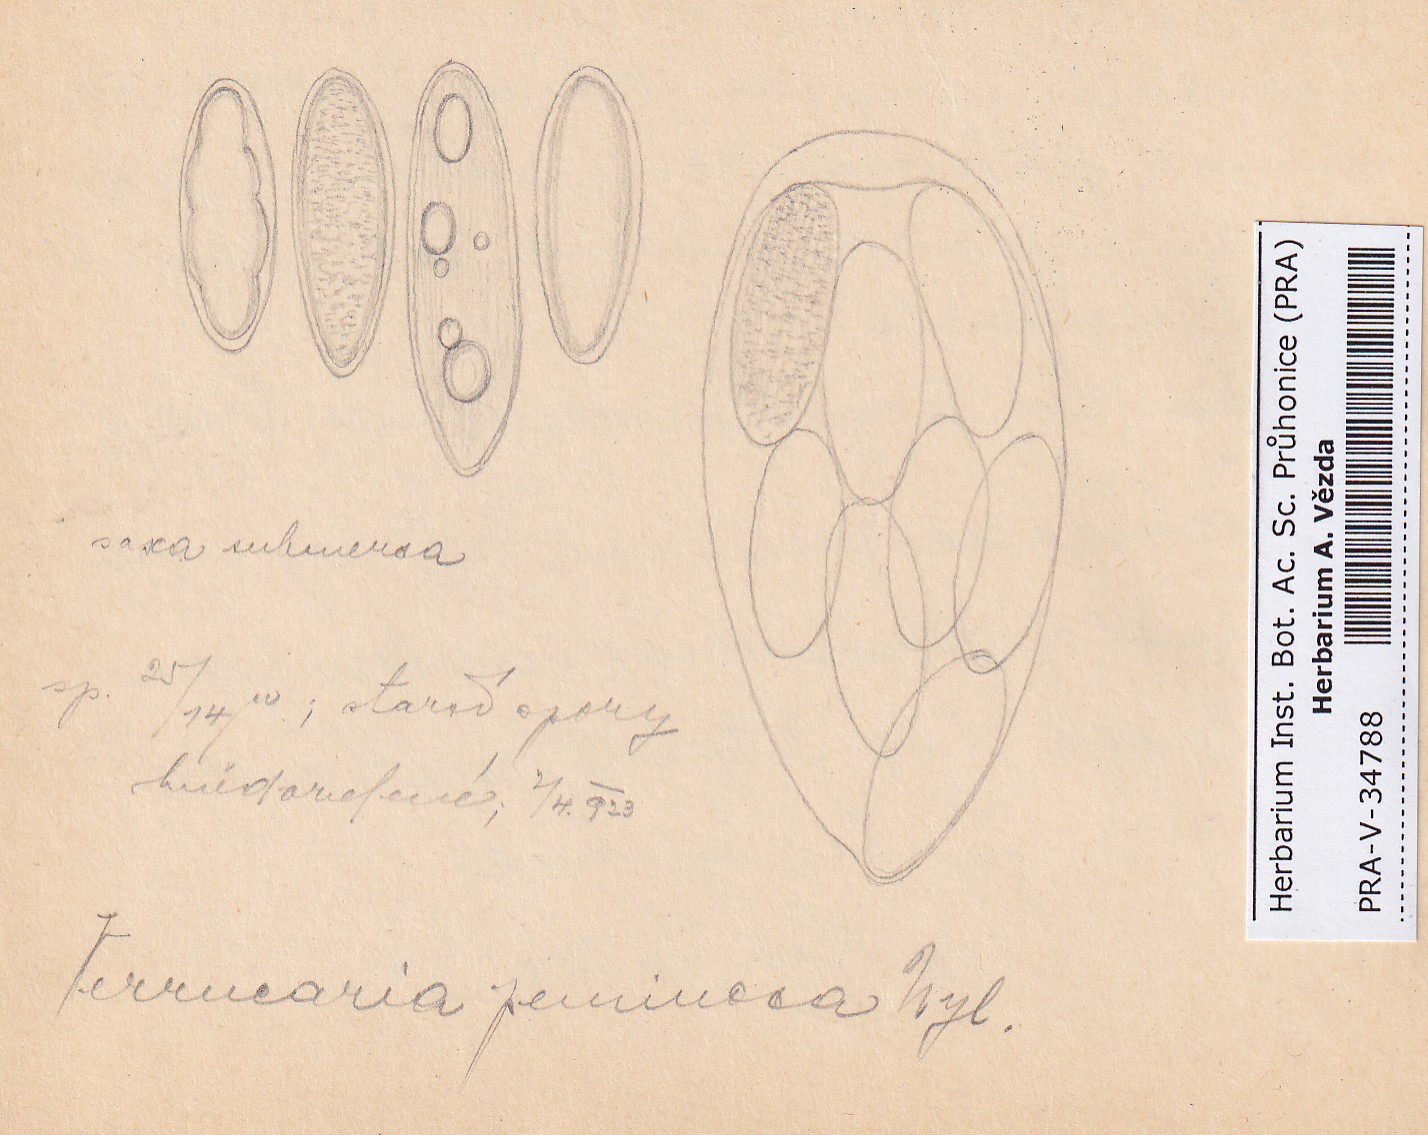 saxa submersa
sp. 25/14 ; staré spory
hnědozelené; 923
Verrucaria Nyl.
Herbarium Inst. Bot. Ac. Sc. Průhonice (PRA)
Herbarium A. Vězda
PRA-V-34788